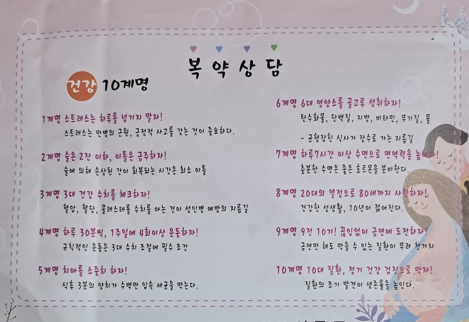 복약상담
건강 10계명
1계명 스트레스는 하루를 넘기지 말자!
스트레스는 만병의 근원, 긍정적 사고를 갖는 것이 중요하다.
2계명 술은 2잔 이하, 이틀은 금주하자!
술에 의해 손상된 간이 회복되는 시간은 최소 이틀
3계명 3대 건강 수치를 체크하자!
혈압, 혈당, 콜레스테롤 수치를 아는 것이 성인병 예방의 지름길
4계명 하루 30분씩, 1주일에 4회이상 운동하자!
규칙적인 운동은 3대 수치 조절에 필수 조건
5계명 치아를 소중히 하자!
식후 3분의 양치가 수백만 입속 세균을 막는다.
6계명 6대 영양소를 골고루 섭취하자!
탄수화물, 단백질, 지방, 비타민, 무기질, 물
- 균형잡힌 식사가 장수로 가는 지름길
7계명 하루7시간 이상 수면으로 면역력을
충분한 수면은 높은 솔로문을
8계명 20대의 열정으로 80세까지
건강한 성생활, 10년이 젊어진다.
9계명 9전 10기! 끊임없이 금연에 도전하자!
금연만 해도 막을 수 있는 질환이 무려 천가지
10계명 10대 질환, 정기 건강 검진으로 막자!
질환의 조기 발견이 생존률을 높인다.